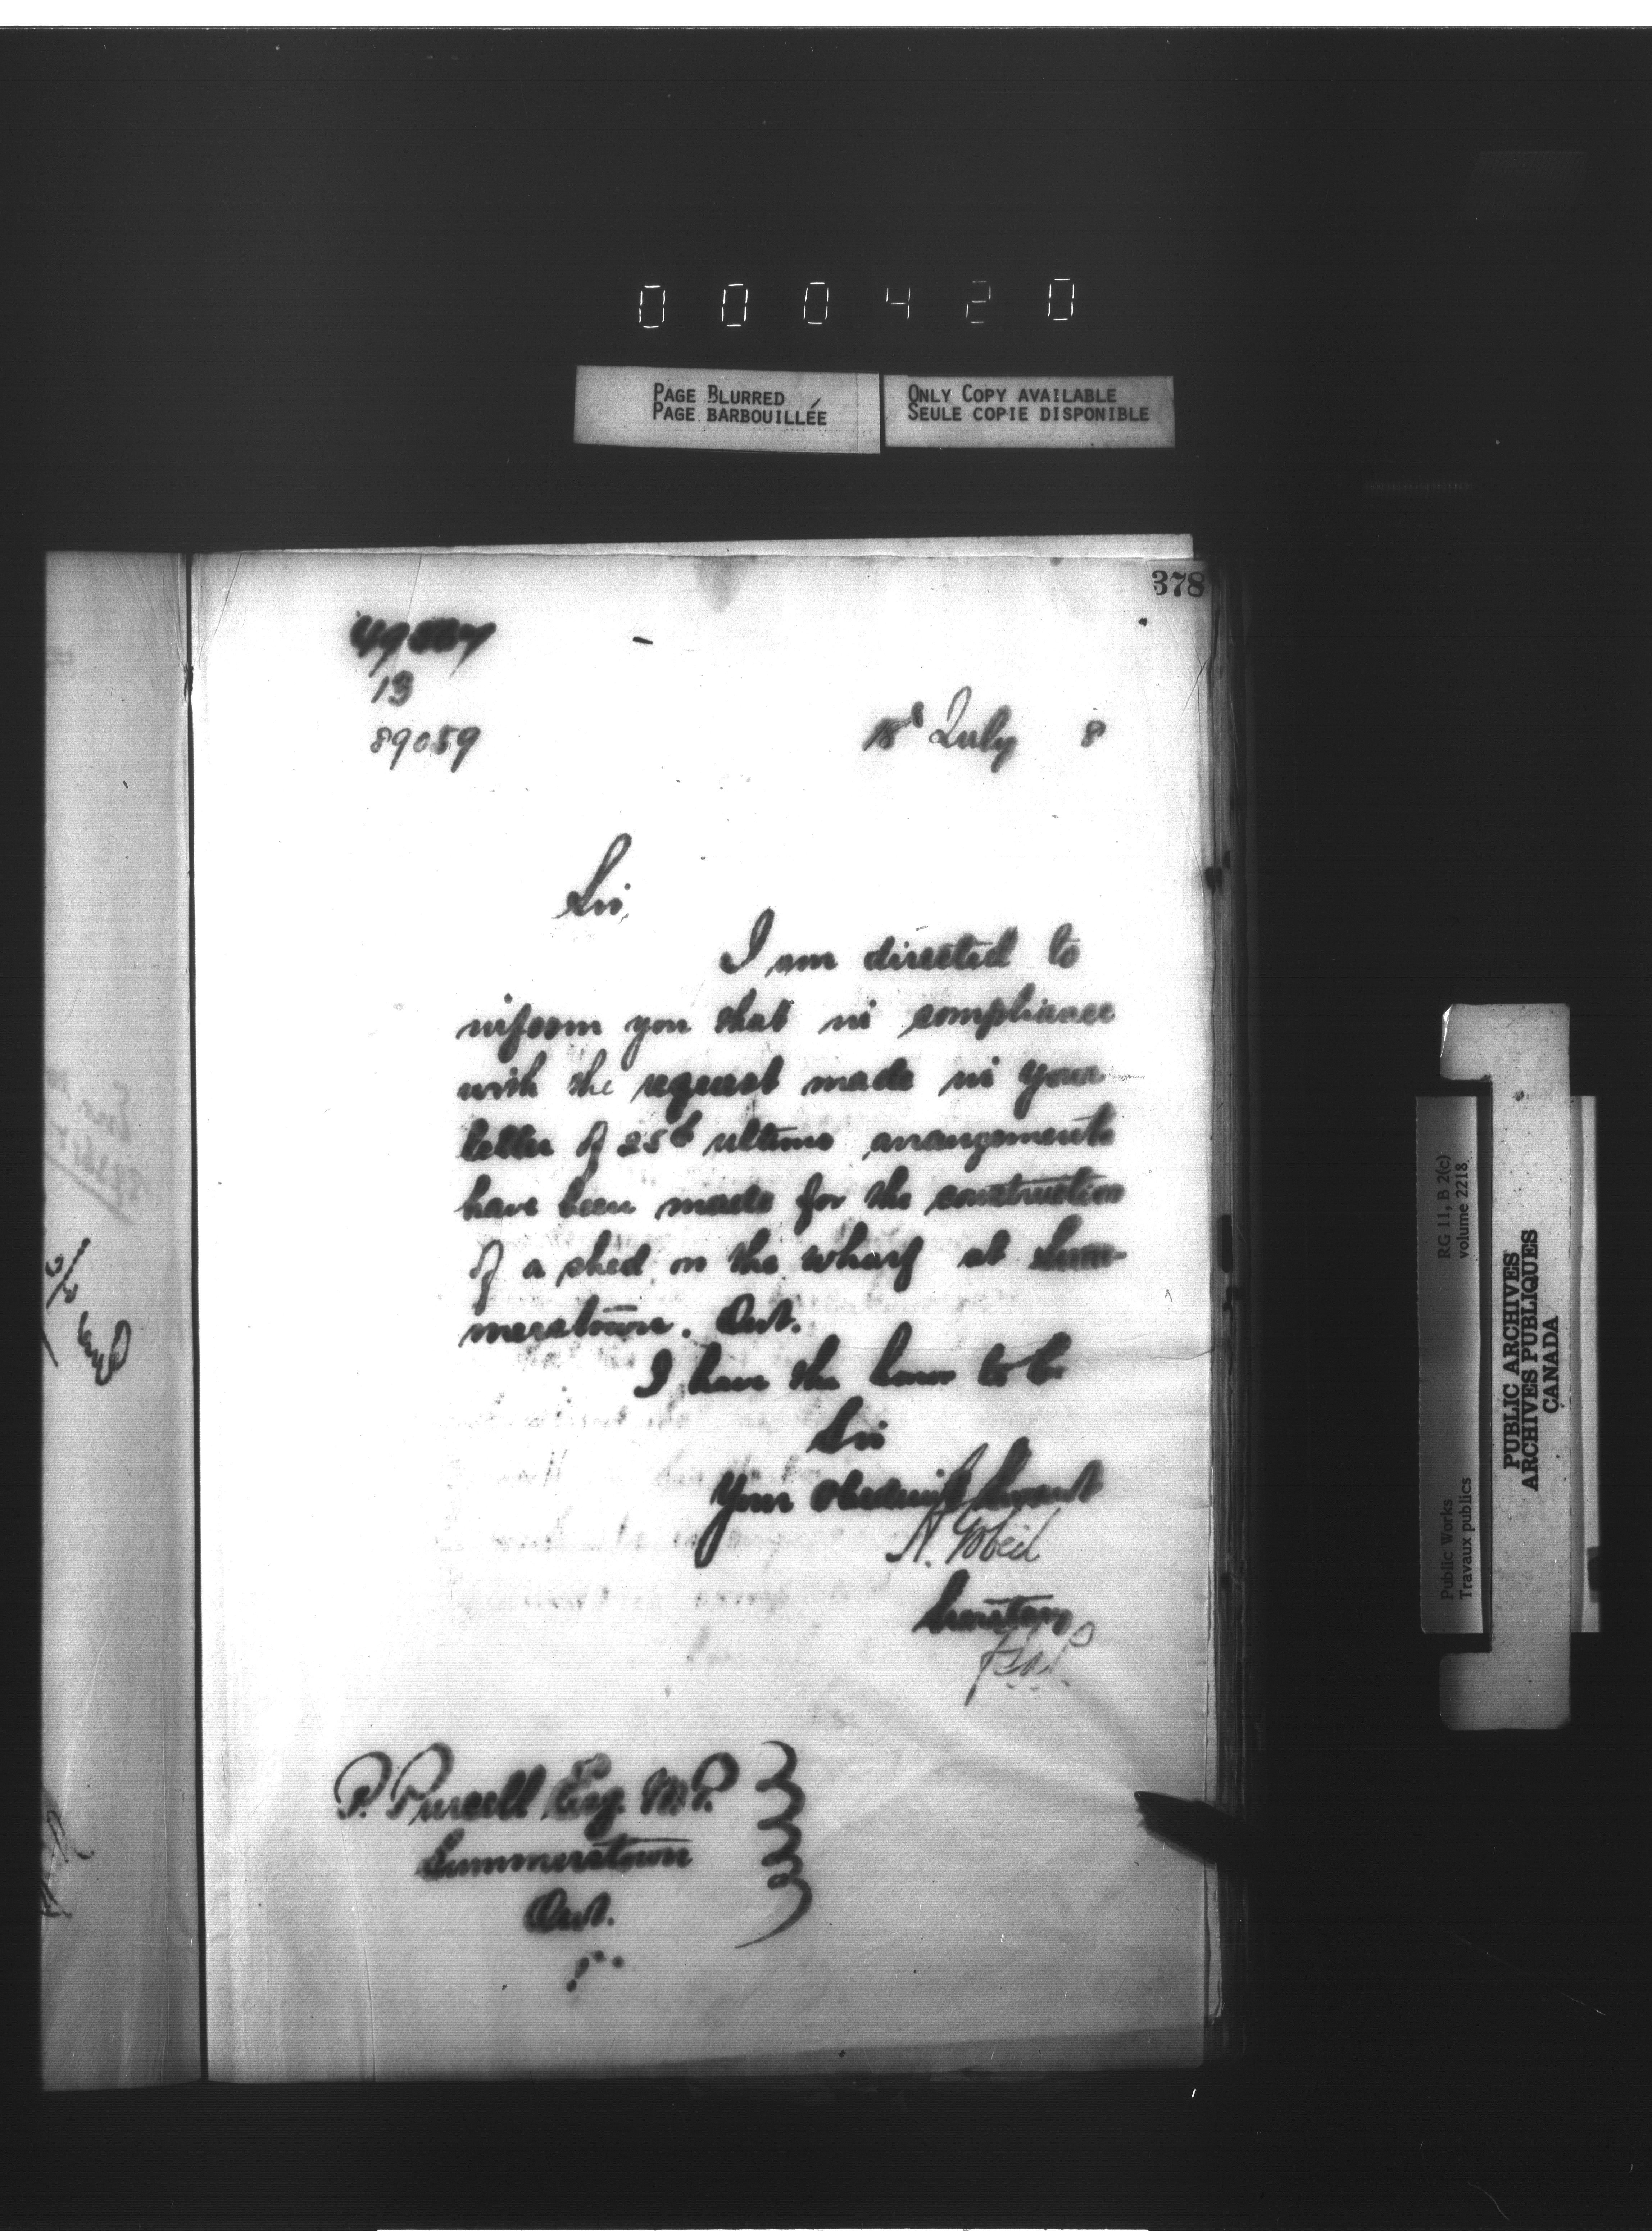 000420
PAGE BLURRED
PAGE BARBOUILLÉE
ONLY COPY AVAILABLE
SEULE COPIE DISPONIBLE
378
13
89059
18th July 8
Sir,
I am directed to
inform you that in compliance
with the request made in your
letter of 25th ultimo arrangements
have been made for the construction
of a shed on the wharf at Sum-
merstown. Ont.
I have the honor to be
Sir
Your obedient Servant
A. Gobeil
Secretary
P. Purcell Esq. M.P.
Summerstown
Ont.
RG 11, B 2(c)
volume 2218
Public Works
Travaux publics
PUBLIC ARCHIVES
ARCHIVES PUBLIQUES
CANADA